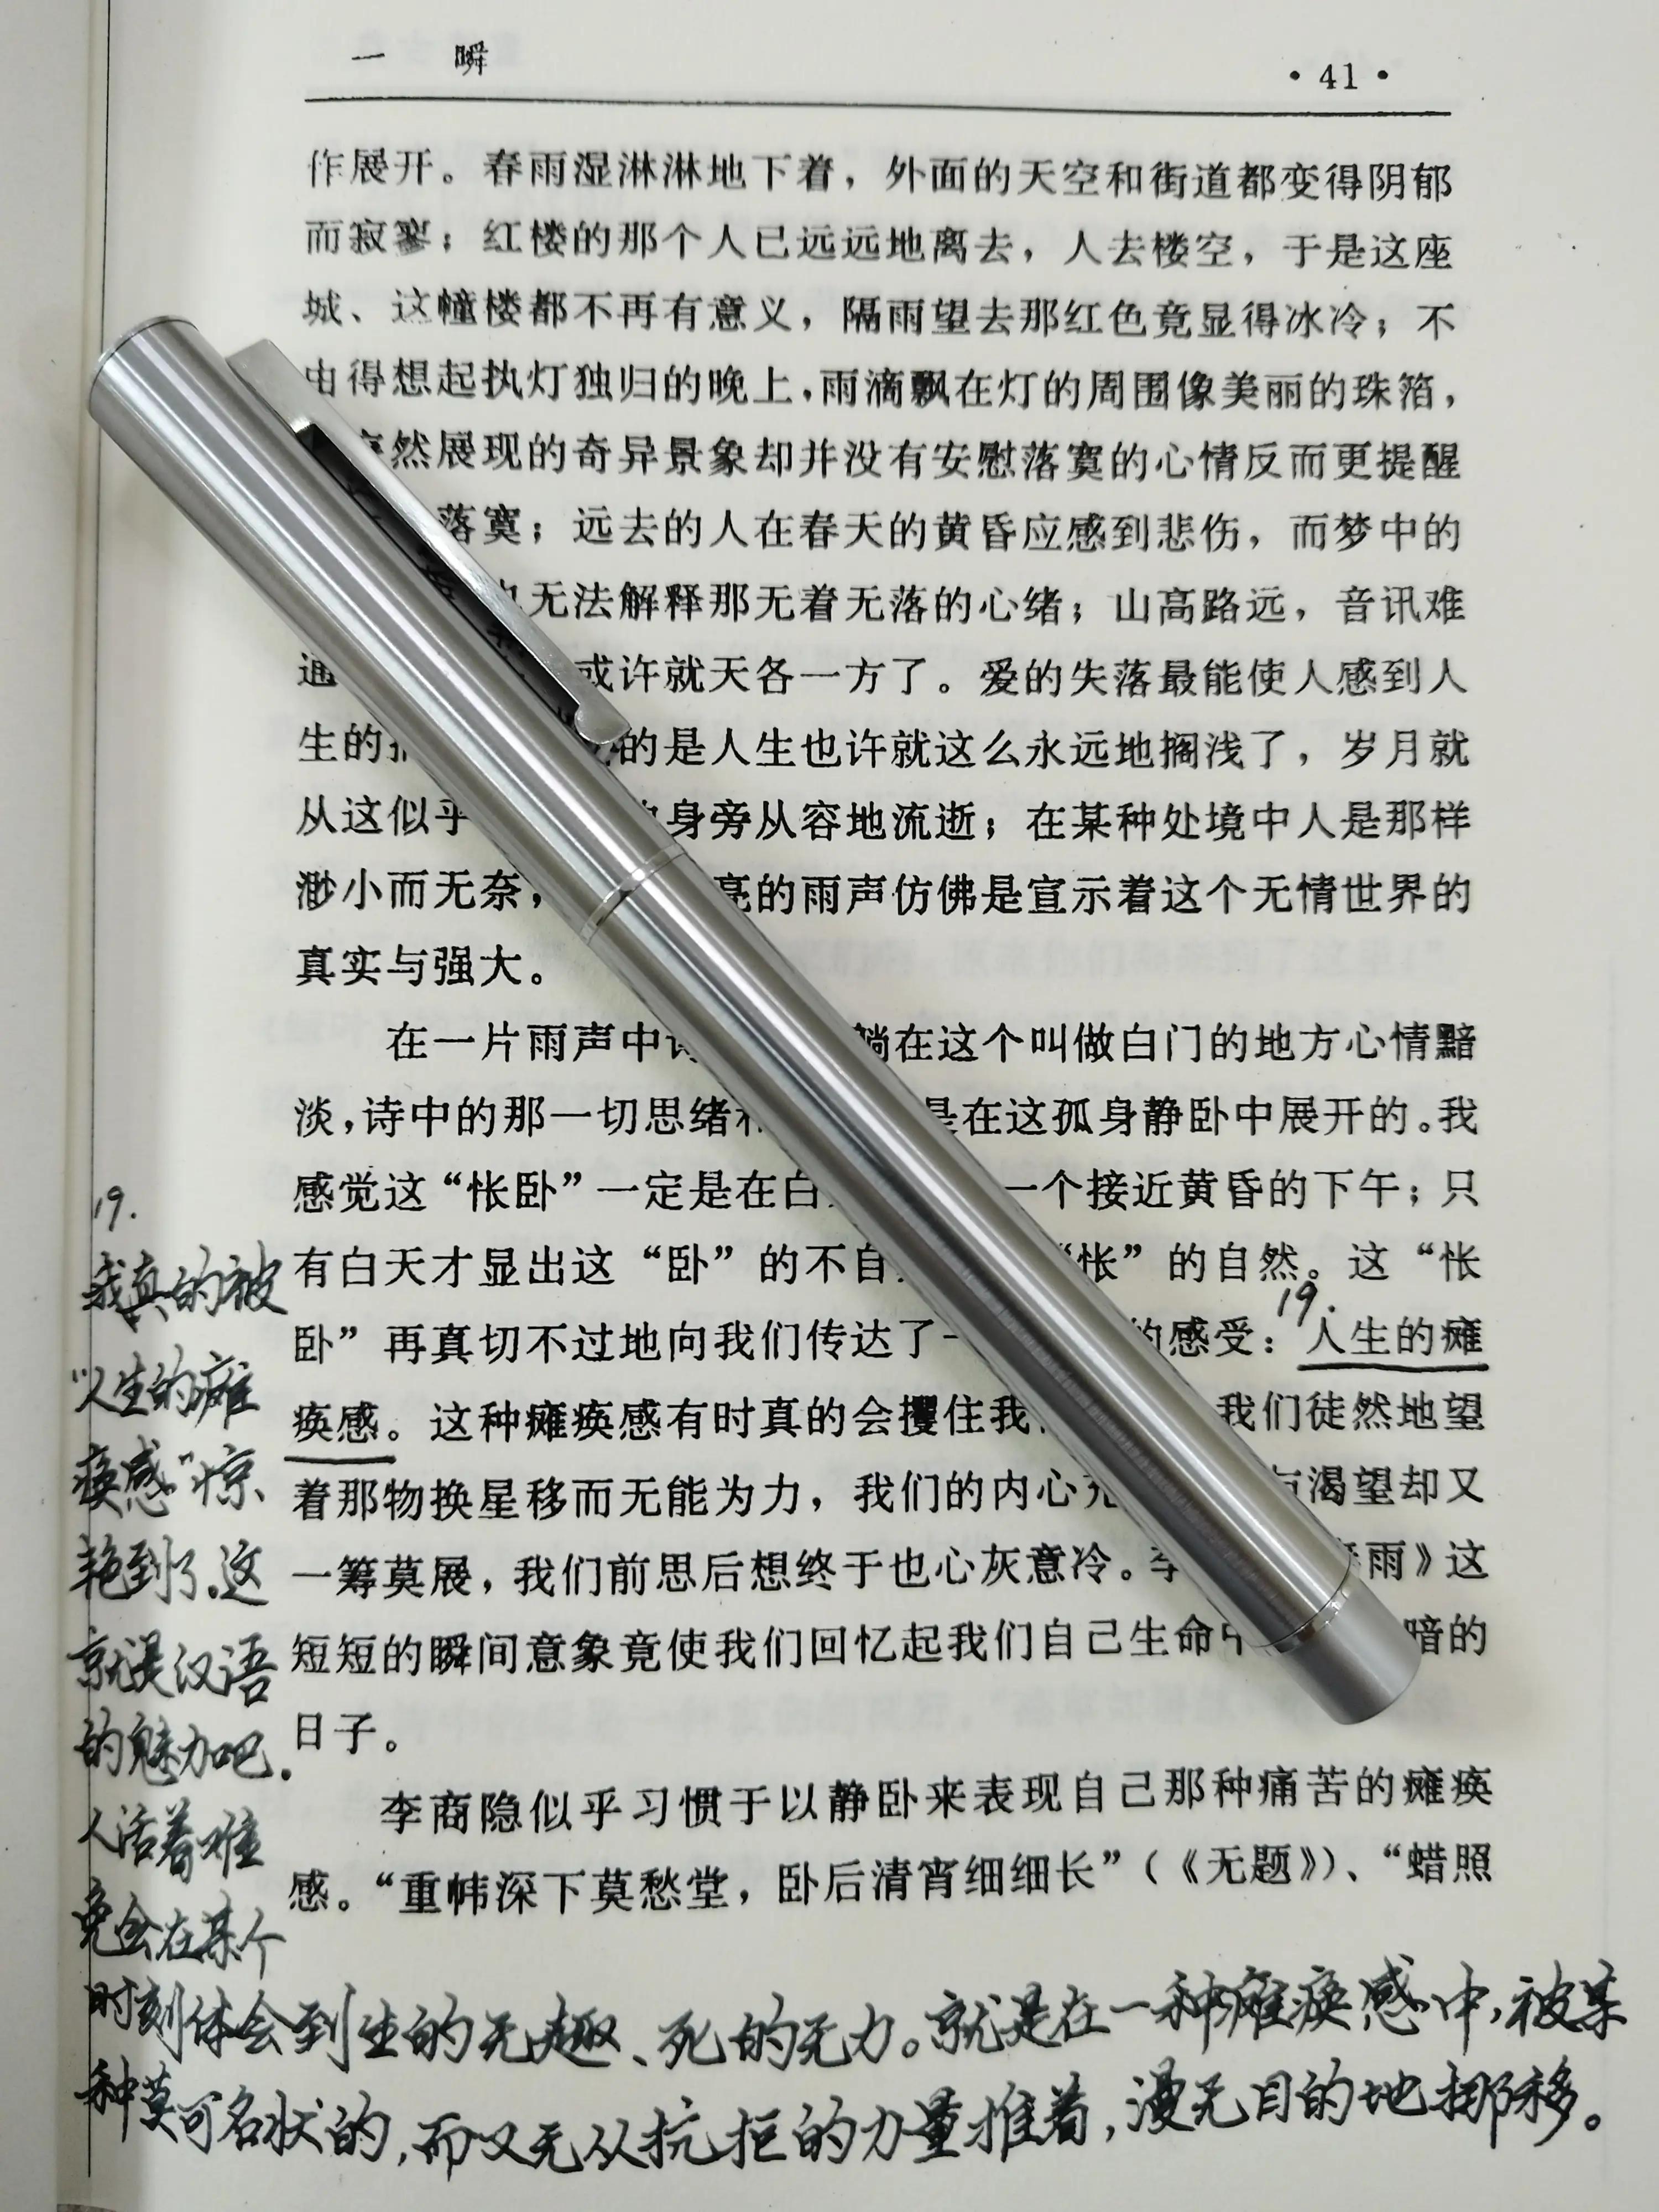 一 瞬 ·41·
作展开。春雨湿淋淋地下着，外面的天空和街道都变得阴郁
而寂寥；红楼的那个人已远远地离去，人去楼空，于是这座
城、这幢楼都不再有意义，隔雨望去那红色竟显得冰冷；不
由得想起执灯独归的晚上，雨滴飘在灯的周围像美丽的珠箔，
然展现的奇异景象却并没有安慰落寞的心情反而更提醒
落寞；远去的人在春天的黄昏应感到悲伤，而梦中的
无法解释那无着无落的心绪；山高路远，音讯难
通 或许就天各一方了。爱的失落最能使人感到人
生的 的是人生也许就这么永远地搁浅了，岁月就
从这似乎 身旁从容地流逝；在某种处境中人是那样
渺小而无奈， 亮的雨声仿佛是宣示着这个无情世界的
真实与强大。
在一片雨声中 躺在这个叫做白门的地方心情黯
淡，诗中的那一切思绪和 是在这孤身静卧中展开的。我
感觉这“怅卧”一定是在白 一个接近黄昏的下午；只
有白天才显出这“卧”的不自 “怅”的自然。这“怅
卧”再真切不过地向我们传达了一 的感受：人生的瘫
19.
痪感。这种瘫痪感有时真的会攫住我 我们徒然地望
着那物换星移而无能为力，我们的内心充 渴望却又
一筹莫展，我们前思后想终于也心灰意冷。李 雨》这
短短的瞬间意象竟使我们回忆起我们自己生命中 暗的
日子。
李商隐似乎习惯于以静卧来表现自己那种痛苦的瘫痪
感。“重帏深下莫愁堂，卧后清宵细细长”（《无题》）、“蜡照
19.
我真的被
“人生的瘫
痪感”惊
艳到了。这
就是汉语
的魅力吧.
人活着难
免会在某个
时刻体会到生的无趣、死的无力。就是在一种瘫痪感中，被某
种莫可名状的，而又无从抗拒的力量推着，漫无目的地挪移。